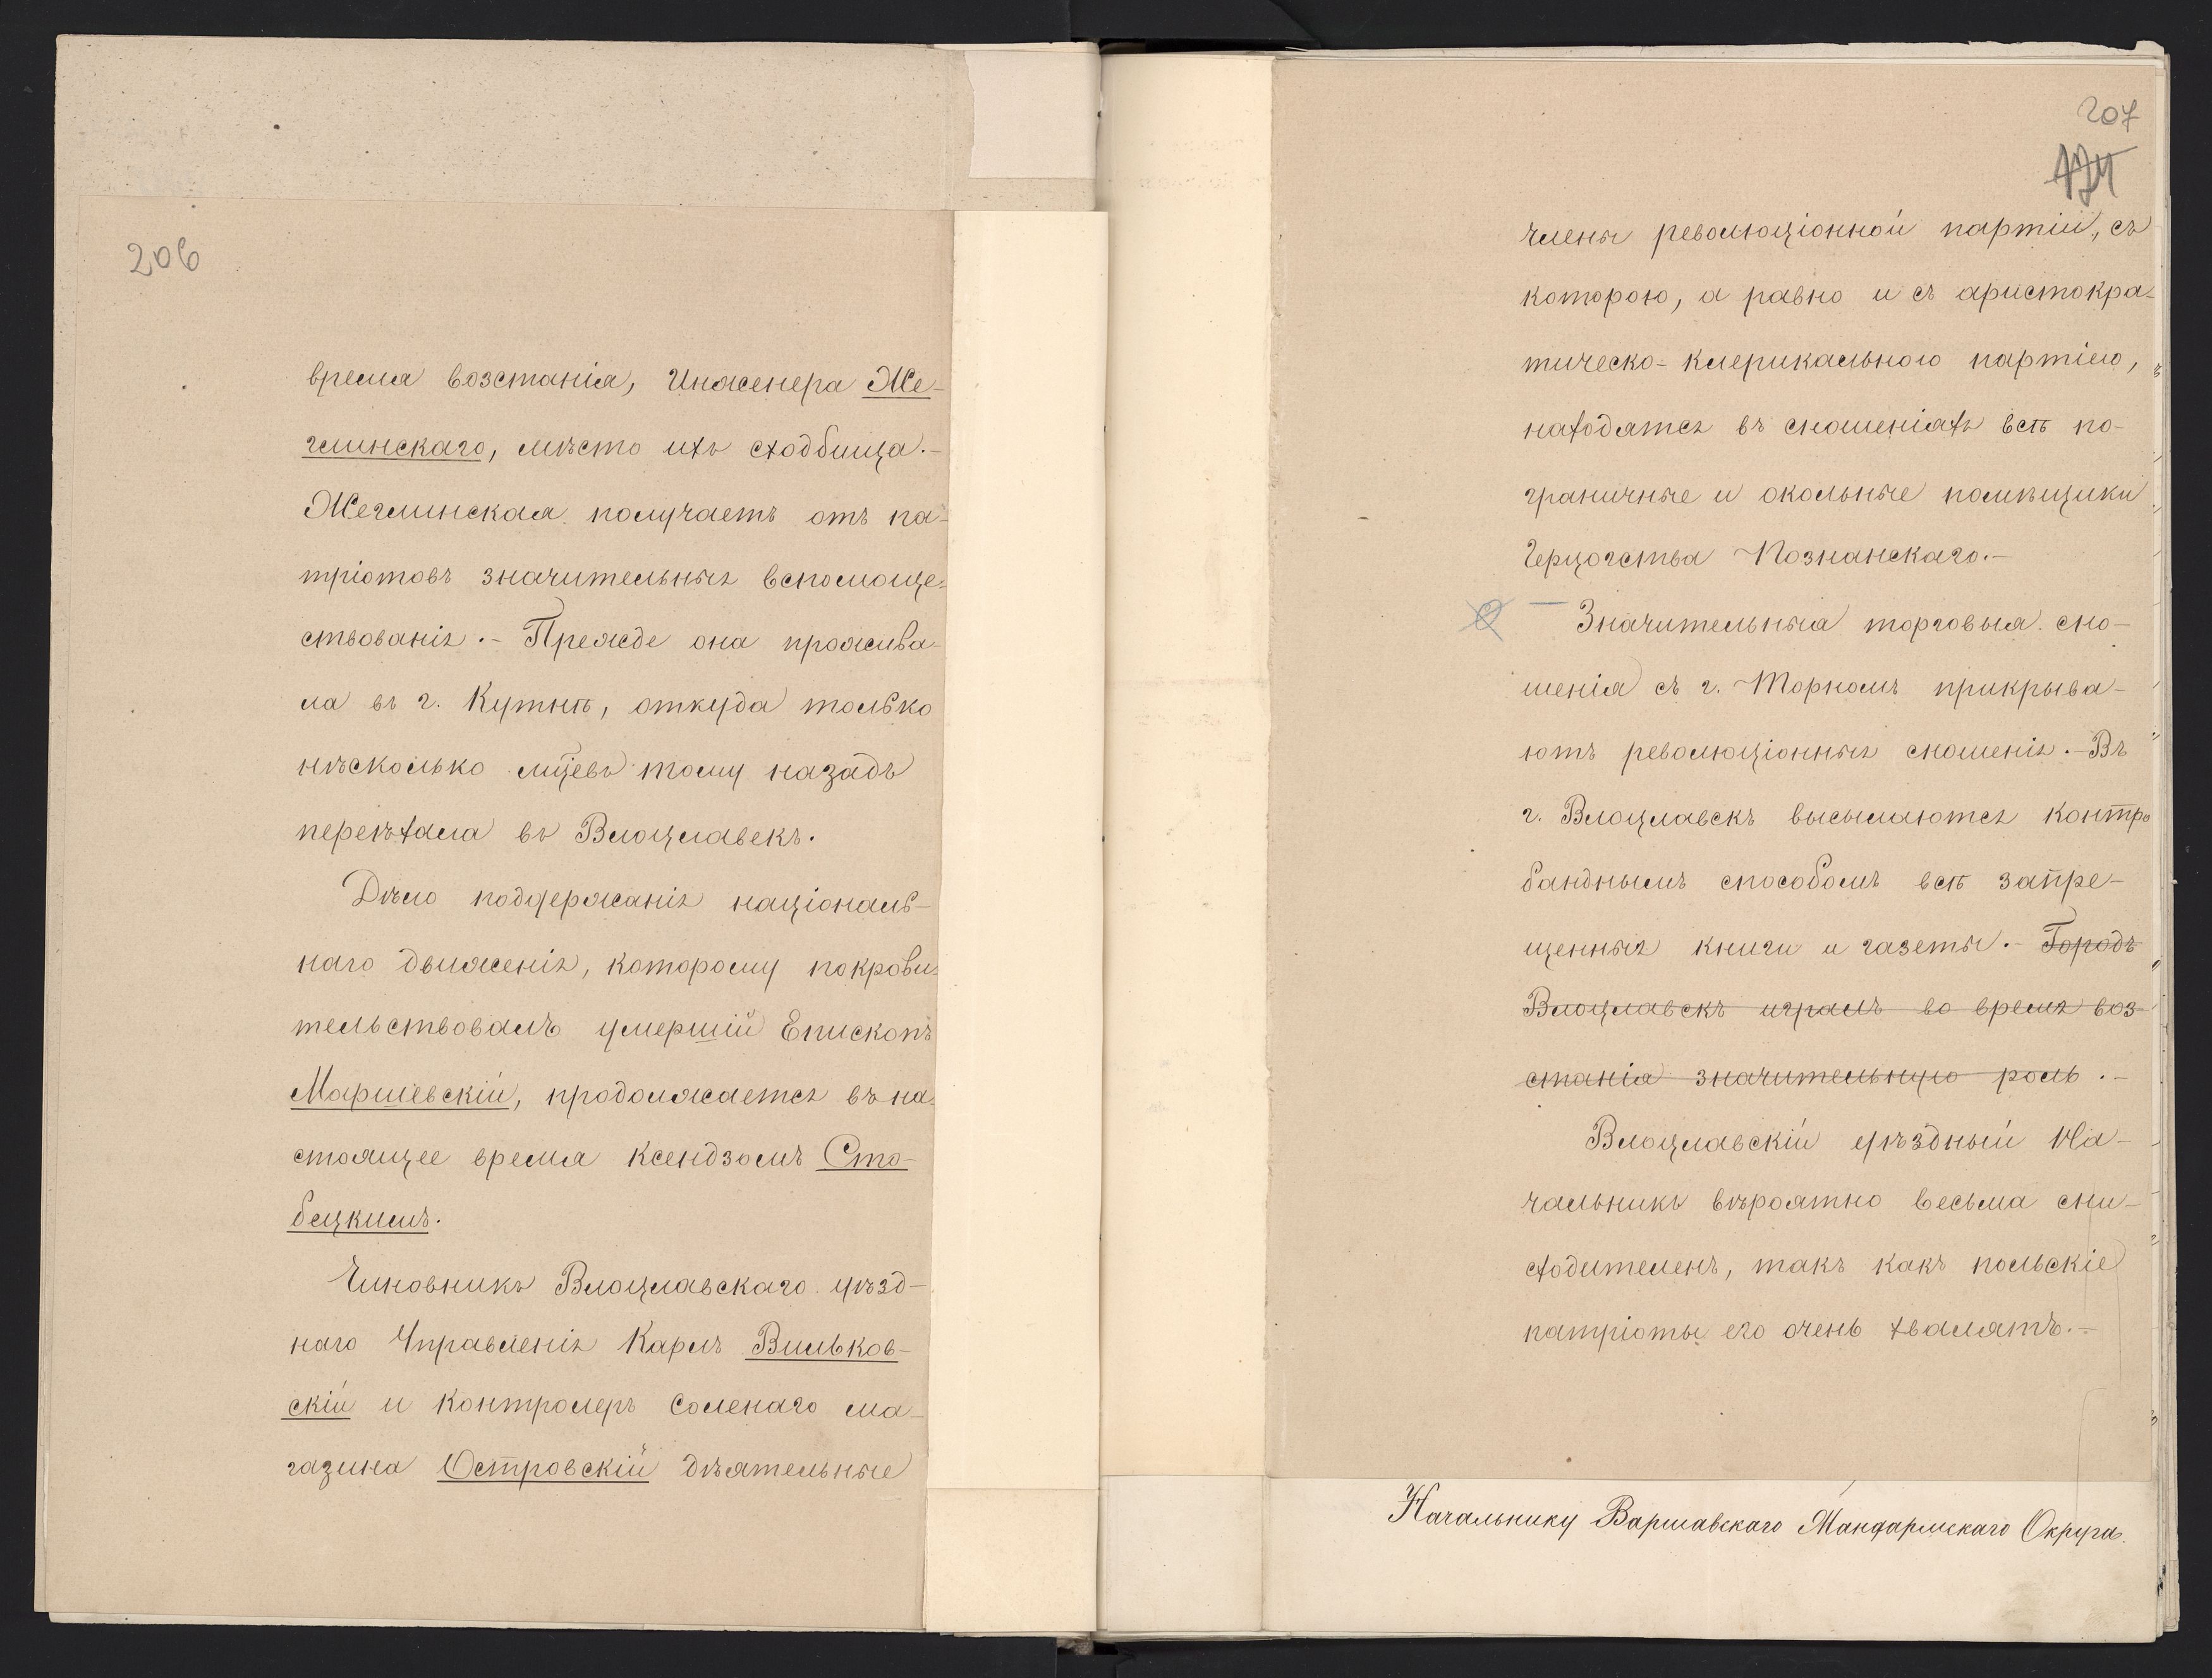 206
время возстанія, Инженера Же-
глинскаго, мѣсто ихъ сходбища.-
Жеглинская получаетъ отъ па-
тріотовъ значительныя вспомоще-
ствованія.- Прежде она прожива-
ла въ г. Кутнѣ, откуда только
нѣсколько мцевъ тому назадъ
переѣхала въ Влоцлавекъ.
Дѣло поддержанія національ-
наго движенія, которому покрови-
тельствовалъ умершій Епископъ
Маршевскій, продолжается въ на-
стоящее время ксендзомъ Сто-
бецкимъ.
Чиновникъ Влоцлавскаго уѣзд-
наго Управленія Карлъ Вильков-
скій и контролеръ Соленаго ма-
газина Островскій дѣятельные
207
174
члены революціонной партіи, съ
которою, а равно и съ аристокра-
тическо-клерикальною партіею,
находятся въ сношеніяхъ всѣ по-
граничные и окольные помѣщики
Герцогства Познанскаго.-
Значительныя торговыя сно-
шенія съ г. Торномъ прикрыва-
ютъ революціонныя сношенія.- Въ
г. Влоцлавскъ высылаются контра
банднымъ способомъ всѣ запре-
щенныя книги и газеты.- Городъ
Влоцлавскъ игралъ во время воз-
станія значительную роль.-
Влоцлавскій уѣздный На-
чальникъ вѣроятно весьма сни-
сходителенъ, такъ какъ польскіе
патріоты его очень хвалятъ.-
Начальнику Варшавскаго Жандармскаго Округа.